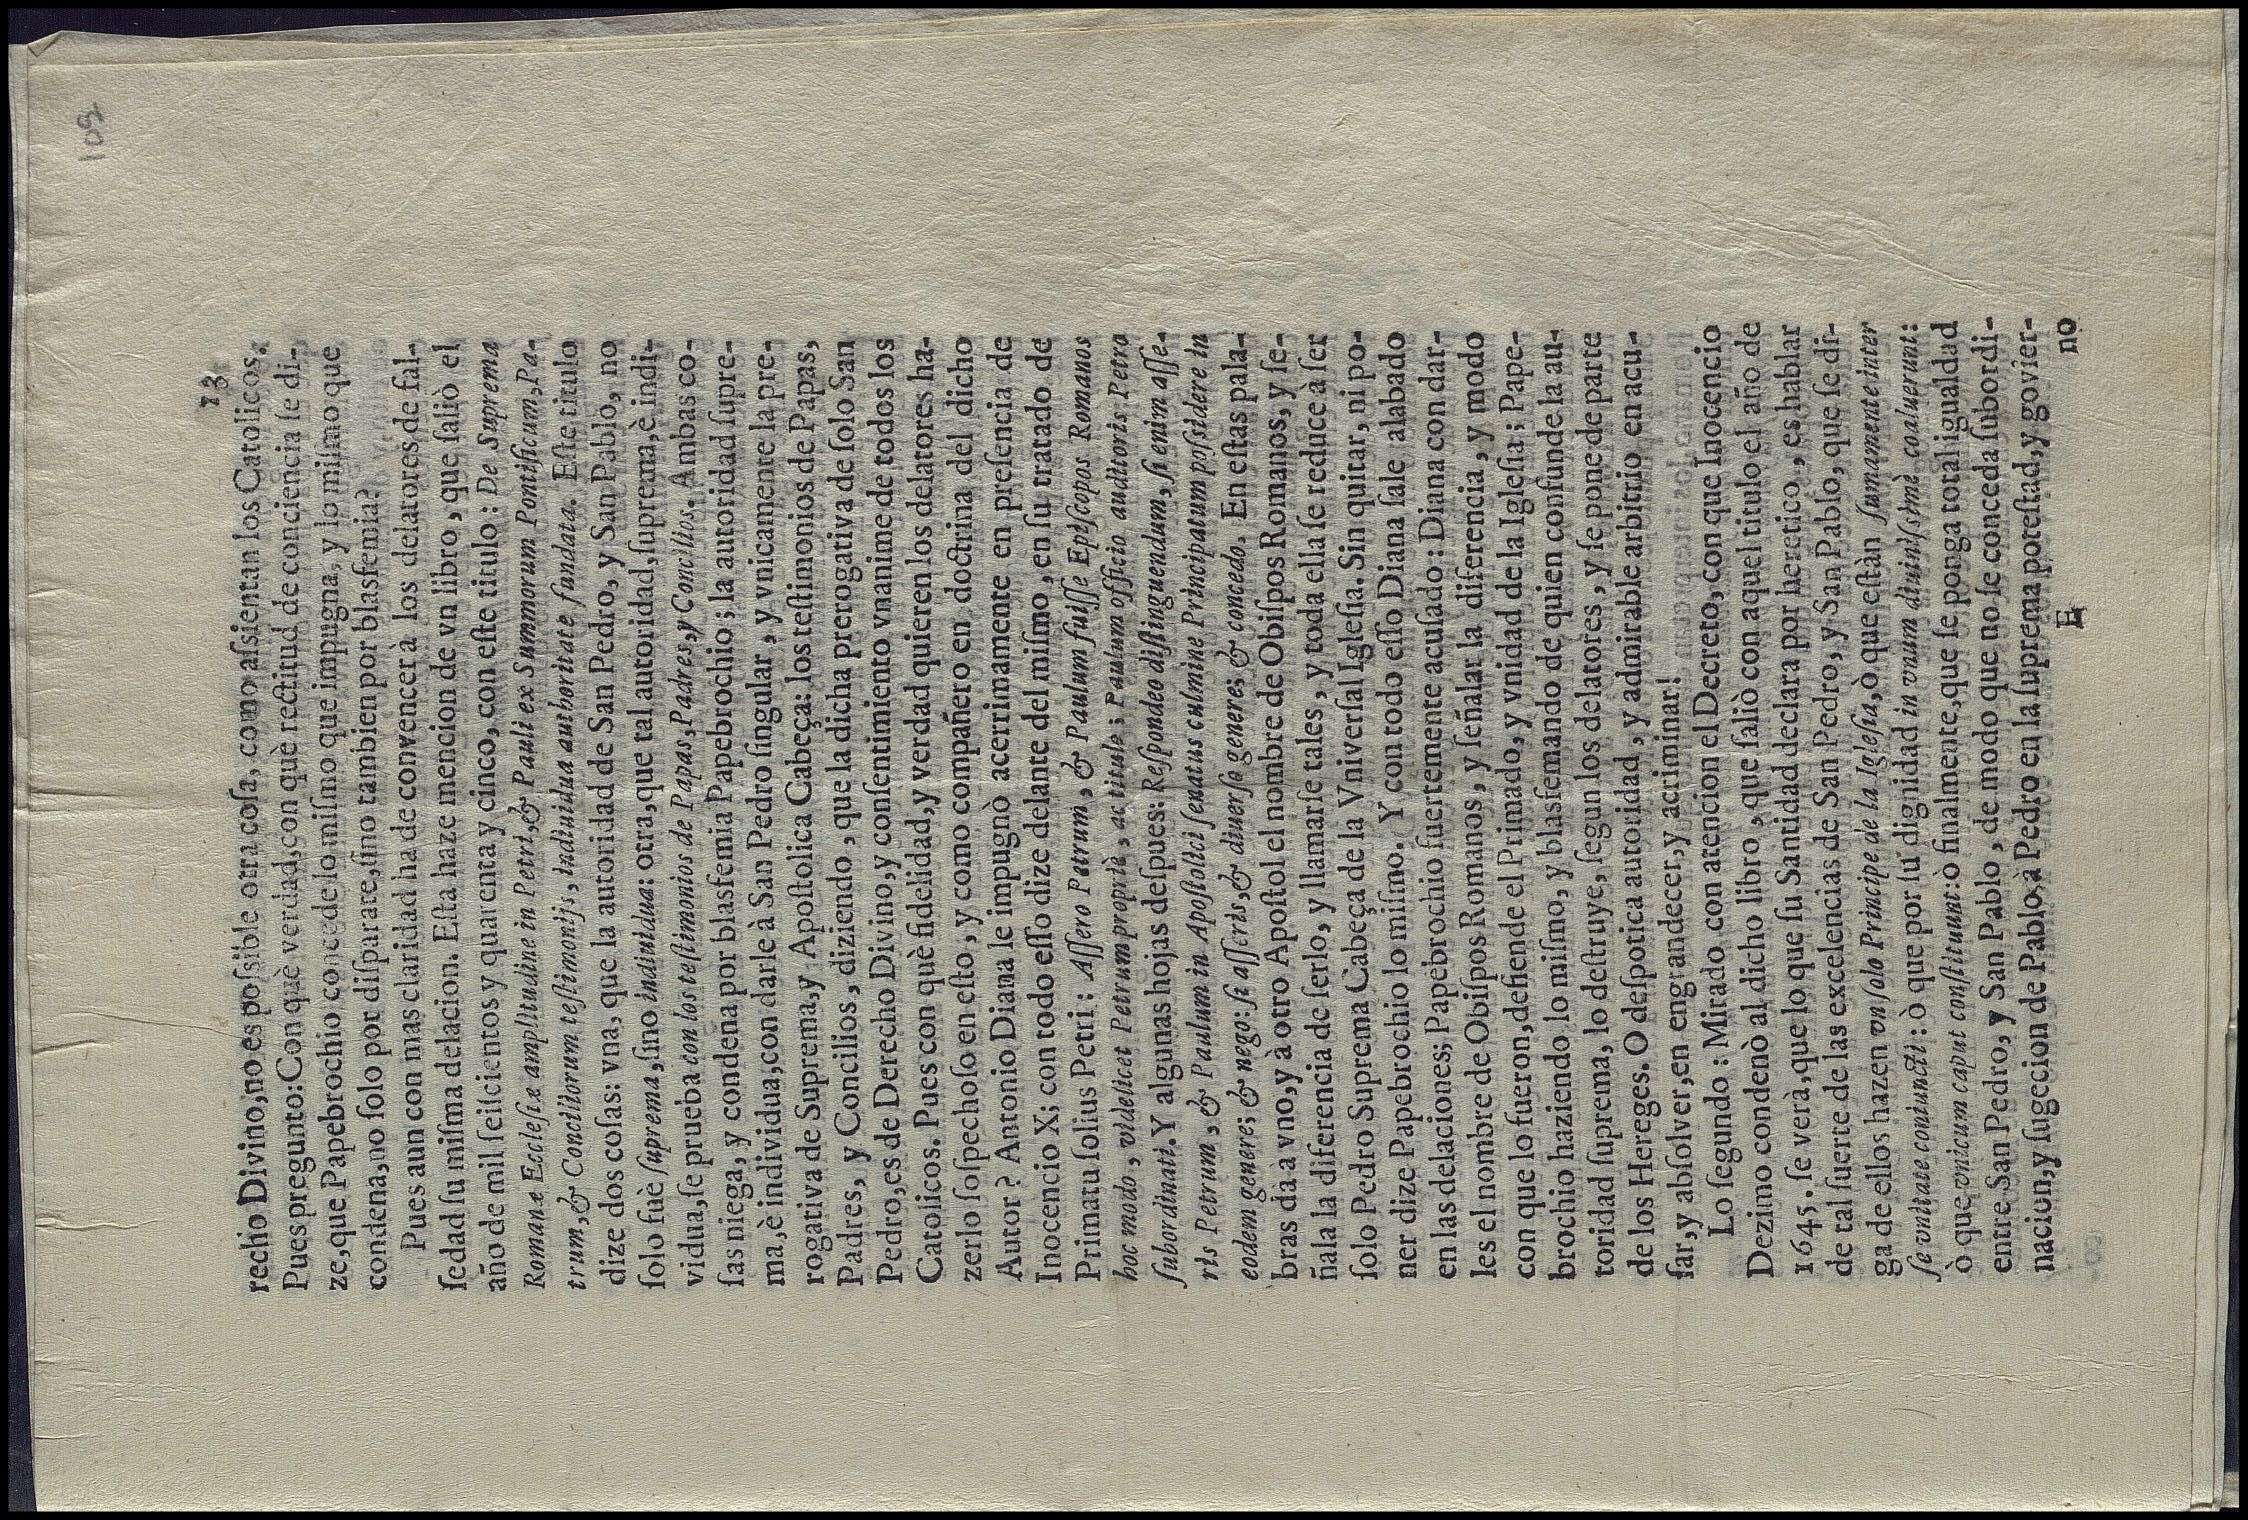 108
23
recho Divino, no es poſsible otra coſa, como aſsientan los Catolicos.
Pues pregunto: Con què verdad, con què rectitud de conciencia ſe di-
ze, que Papebrochio concede lo miſmo que impugna, y lo miſmo que
condena, no ſolo por diſparate, ſino tambien por blasfemia?
Pues aun con mas claridad ha de convencer à los delatores de fal-
ſedad ſu miſma delacion. Eſta haze mencion de vn libro, que ſaliò el
año de mil ſeiſcientos y quarenta y cinco, con eſte titulo: De Suprema
Romanæ Eccleſiæ amplitudine in Petri, & Pauli ex Summorum Pontificum, Pa-
trum, & Conciliorum teſtimonijs, indiuidua authoritate fundata. Eſte titulo
dize dos coſas: vna, que la autoridad de San Pedro, y San Pablo, no
ſolo fuè ſuprema, ſino indiuidua: otra, que tal autoridad, ſuprema, è indi-
vidua, ſe prueba con los teſtimonios de Papas, Padres, y Concilios. Ambas co-
ſas niega, y condena por blasfemia Papebrochio; la autoridad ſupre-
ma, è individua, con darle à San Pedro ſingular, y vnicamente la pre-
rogativa de Suprema, y Apoſtolica Cabeça: los teſtimonios de Papas,
Padres, y Concilios, diziendo, que la dicha prerogativa de ſolo San
Pedro, es de Derecho Divino, y conſentimiento vnanime de todos los
Catolicos. Pues con què fidelidad, y verdad quieren los delatores ha-
zerlo ſoſpechoſo en eſto, y como compañero en doctrina del dicho
Autor? Antonio Diana le impugnò acerrimamente en preſencia de
Inocencio X; con todo eſſo dize delante del miſmo, en ſu tratado de
Primatu ſolius Petri: Aſſero Petrum, & Paulum fuiſſe Epiſcopos Romanos
hoc modo, videlicet Petrum propriè, ac titulo; Paulum officio auditoris Petro
ſubordinati. Y algunas hojas deſpues: Reſpondeo diſtinguendum, ſi enim aſſe-
ris Petrum, & Paulum in Apoſtolici ſenatus culmine Principatum poſsidere in
eodem genere; & nego: ſi aſſeris, & diuerſo genere; & concedo. En eſtas pala-
bras dà à vno, y à otro Apoſtol el nombre de Obiſpos Romanos, y ſe-
ñala la diferencia de ſerlo, y llamarſe tales, y toda ella ſe reduce à ſer
ſolo Pedro Suprema Cabeça de la Vniverſal Igleſia. Sin quitar, ni po-
ner dize Papebrochio lo miſmo. Y con todo eſſo Diana ſale alabado
en las delaciones; Papebrochio fuertemente acuſado: Diana con dar-
les el nombre de Obiſpos Romanos, y ſeñalar la diferencia, y modo
con que lo fueron, defiende el Primado, y vnidad de la Igleſia; Pape-
brochio haziendo lo miſmo, y blasfemando de quien confunde la au-
toridad ſuprema, lo deſtruye, ſegun los delatores, y ſe pone de parte
de los Hereges. O deſpotica autoridad, y admirable arbitrio en acu-
ſar, y abſolver, en engrandecer, y acriminar!
Lo ſegundo: Mirado con atencion el Decreto, con que Inocencio
Dezimo condenò al dicho libro, que ſaliò con aquel titulo el año de
1645. ſe verà, que lo que ſu Santidad declara por heretico, es hablar
de tal ſuerte de las excelencias de San Pedro, y San Pablo, que ſe di-
ga de ellos hazen vn ſolo Principe de la Igleſia, ò que eſtàn ſumamente inter
ſe vnitate coniuncti: ò que por ſu dignidad in vnum diuiniſsimè coaluerunt:
ò que vnicum caput conſtituunt: ò finalmente, que ſe ponga total igualdad
entre San Pedro, y San Pablo, de modo que no ſe conceda ſubordi-
nacion, y ſugecion de Pablo, à Pedro en la ſuprema poteſtad, y govier-
E
no